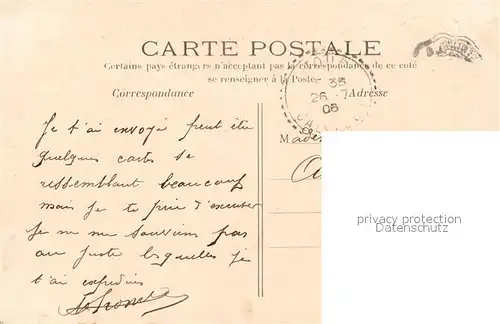 CARTE POSTALE
Certains pays étrangers n'acceptant pas la correspondance de ce coté
se renseigner à la Poste
Correspondance
Adresse
35
26 -7
08
Je t'ai envoyé peut être
quelques cartes se
ressemblant beaucoup
mais je te prie d'excuser
je ne me souviens pas
au juste lesquelles je
t'ai expédiées
privacy protection
Datenschutz